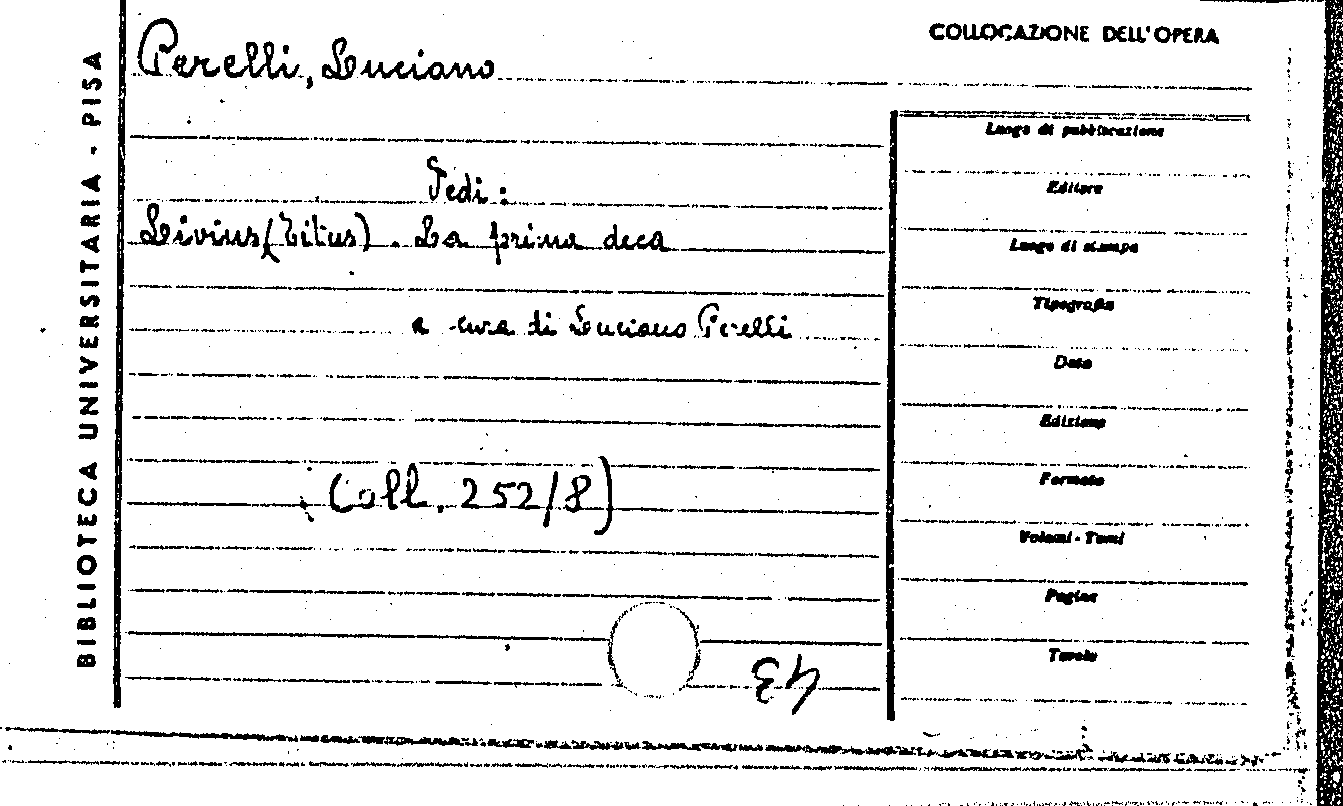 BIBLIOTECA UNIVERSITARIA - PISA
COLLOCAZIONE DELL'OPERA
Perelli, Luciano
Vedi:
Livius (Titus). La prima deca
a cura di Luciano Perelli
(Coll. 252/8)
43
Luogo di pubblicazione
Editore
Luogo di stampa
Tipografia
Data
Edizione
Formato
Volumi - Tomi
Pagine
Tavole